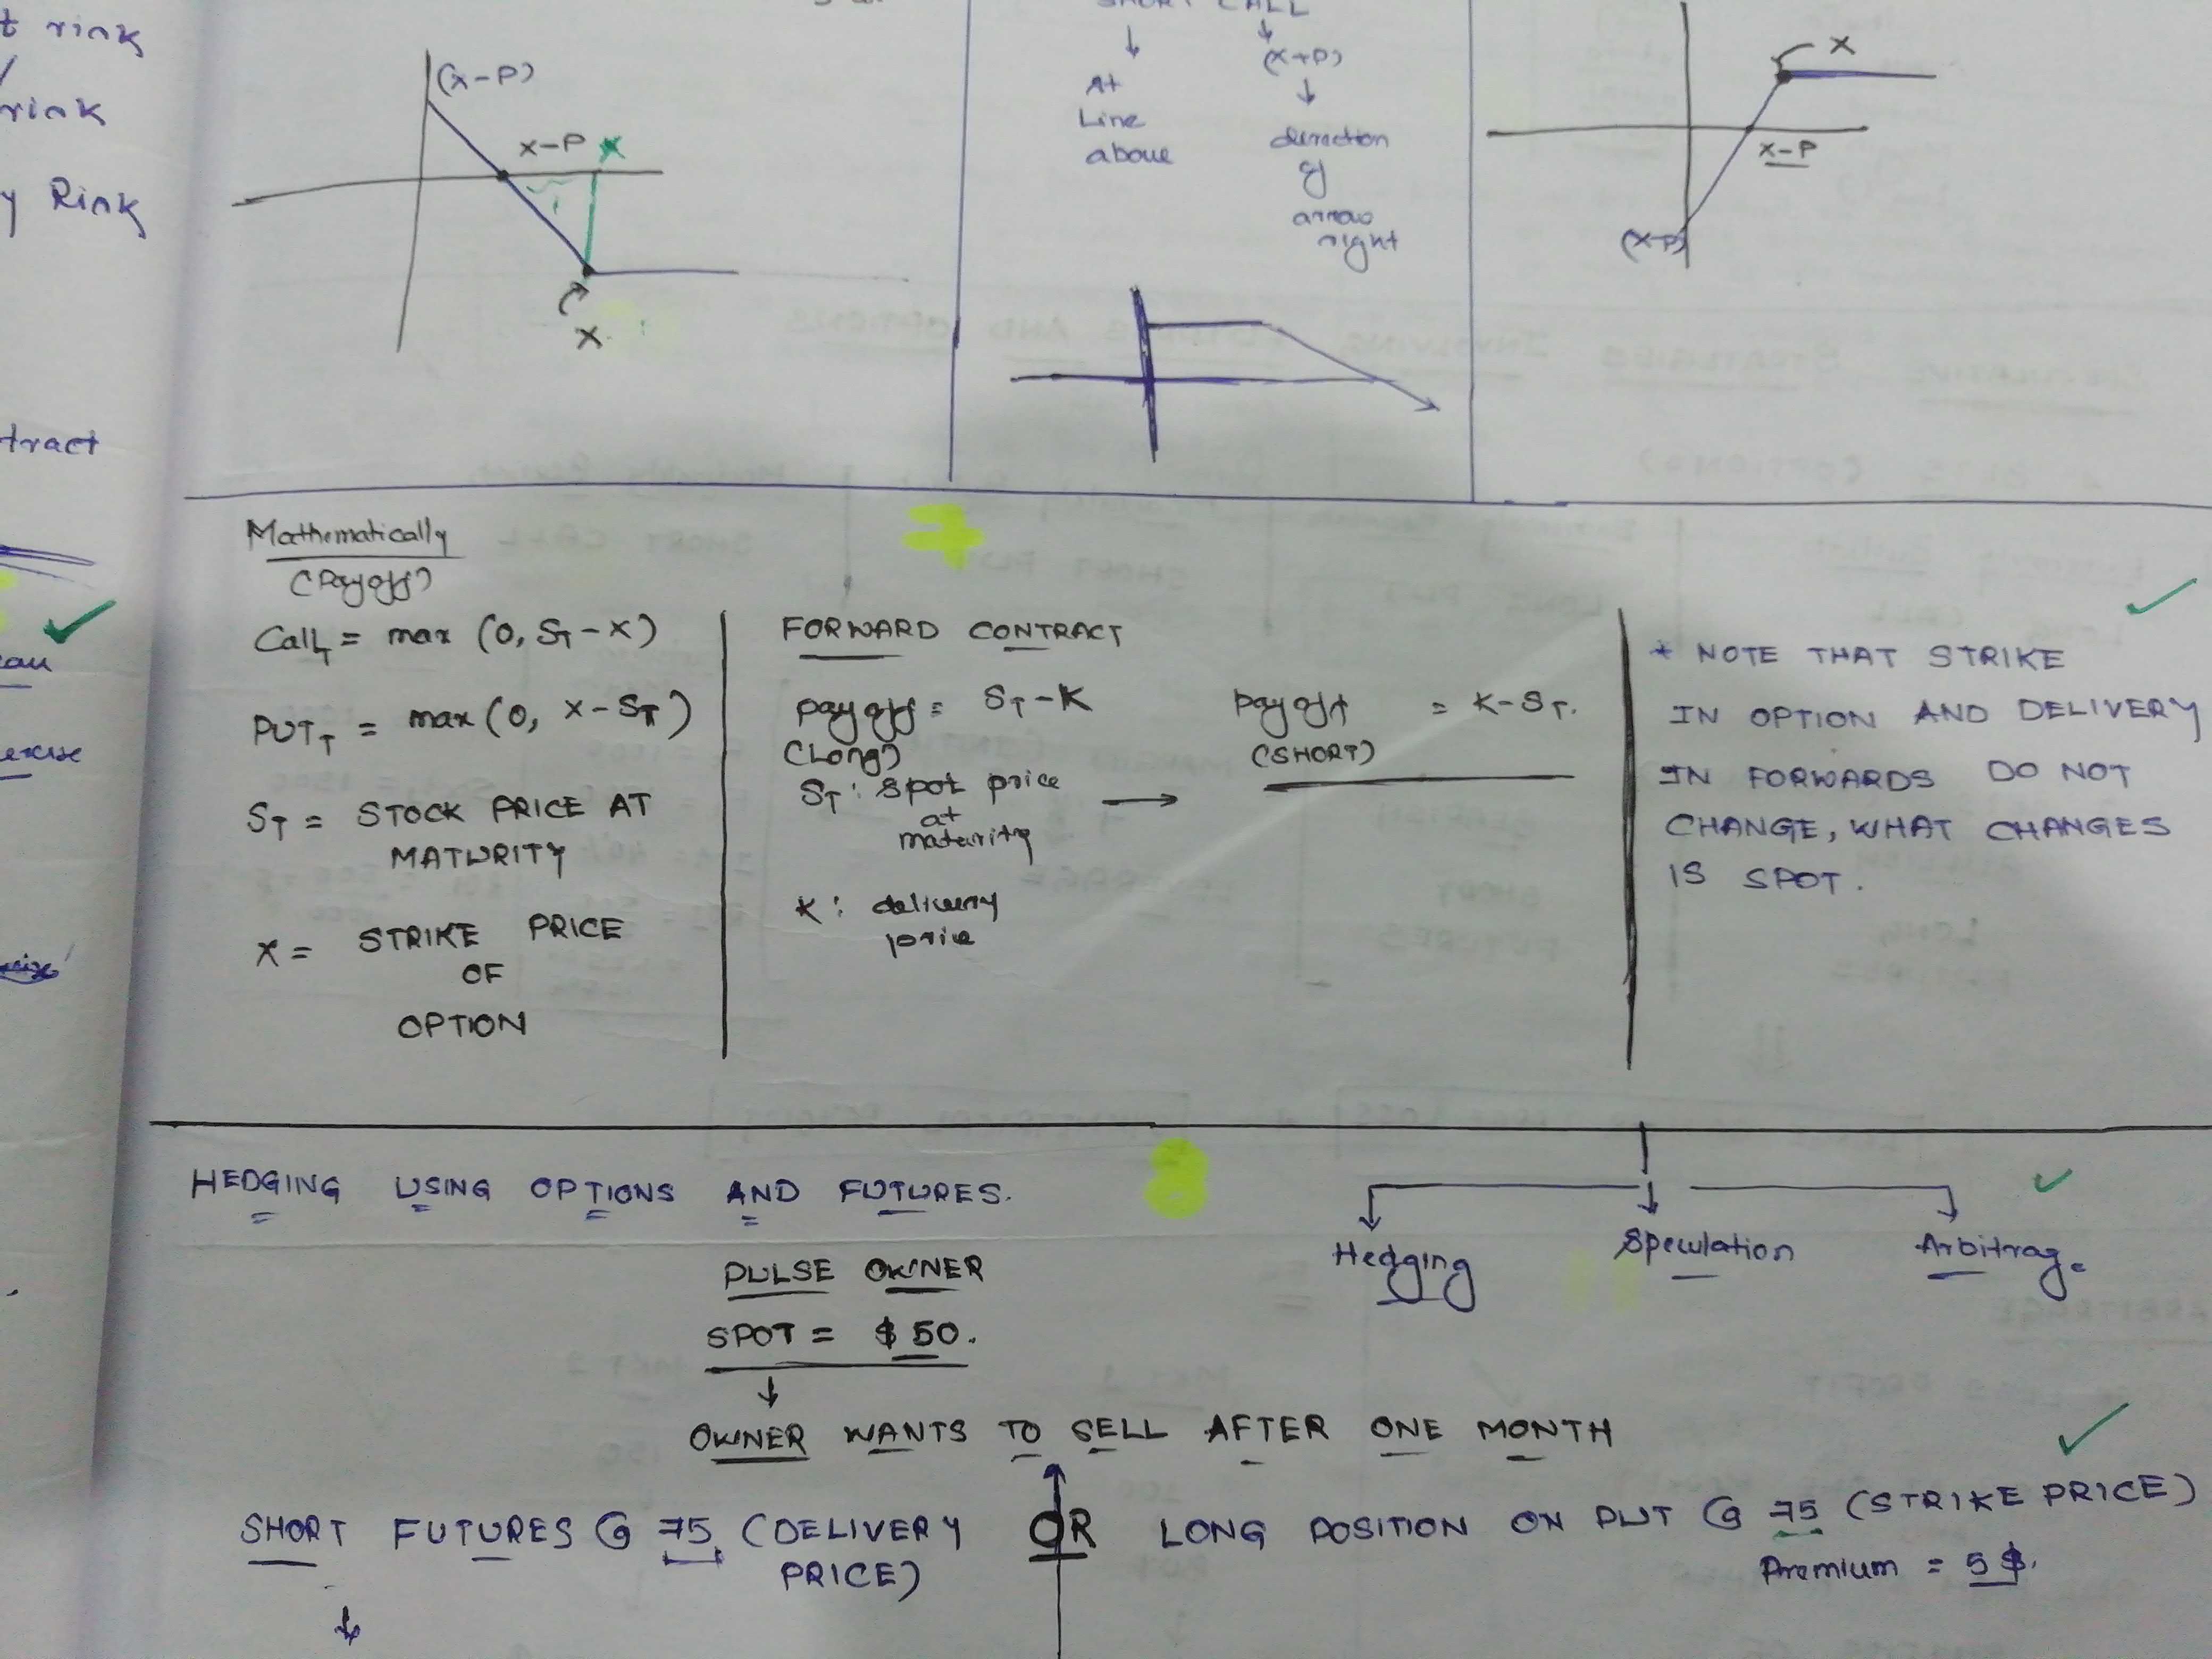 t rink
rink
y Rink
tract
(X-P)
X-P X
X
SHORT CALL
At
Line
above
(X+P)
direction
of
arrow
right
X
X-P
(X-P)
7
Mathematically
(Payoff)
Call_T = max (0, S_T - X)
PUT_T = max (0, X - S_T)
S_T = STOCK PRICE AT
MATURITY
X = STRIKE PRICE
OF
OPTION
FORWARD CONTRACT
Payoff = S_T - K
(Long)
S_T : Spot price →
at
maturity
K : delivery
price
Payoff = K - S_T.
(SHORT)
* NOTE THAT STRIKE
IN OPTION AND DELIVERY
IN FORWARDS DO NOT
CHANGE, WHAT CHANGES
IS SPOT.
HEDGING USING OPTIONS AND FUTURES.
8
Hedging Speculation Arbitrage
PULSE OWNER
SPOT = $ 50.
OWNER WANTS TO SELL AFTER ONE MONTH
SHORT FUTURES @ 75 (DELIVERY
PRICE)
OR
LONG POSITION ON PUT @ 75 (STRIKE PRICE)
Premium = 5 $.